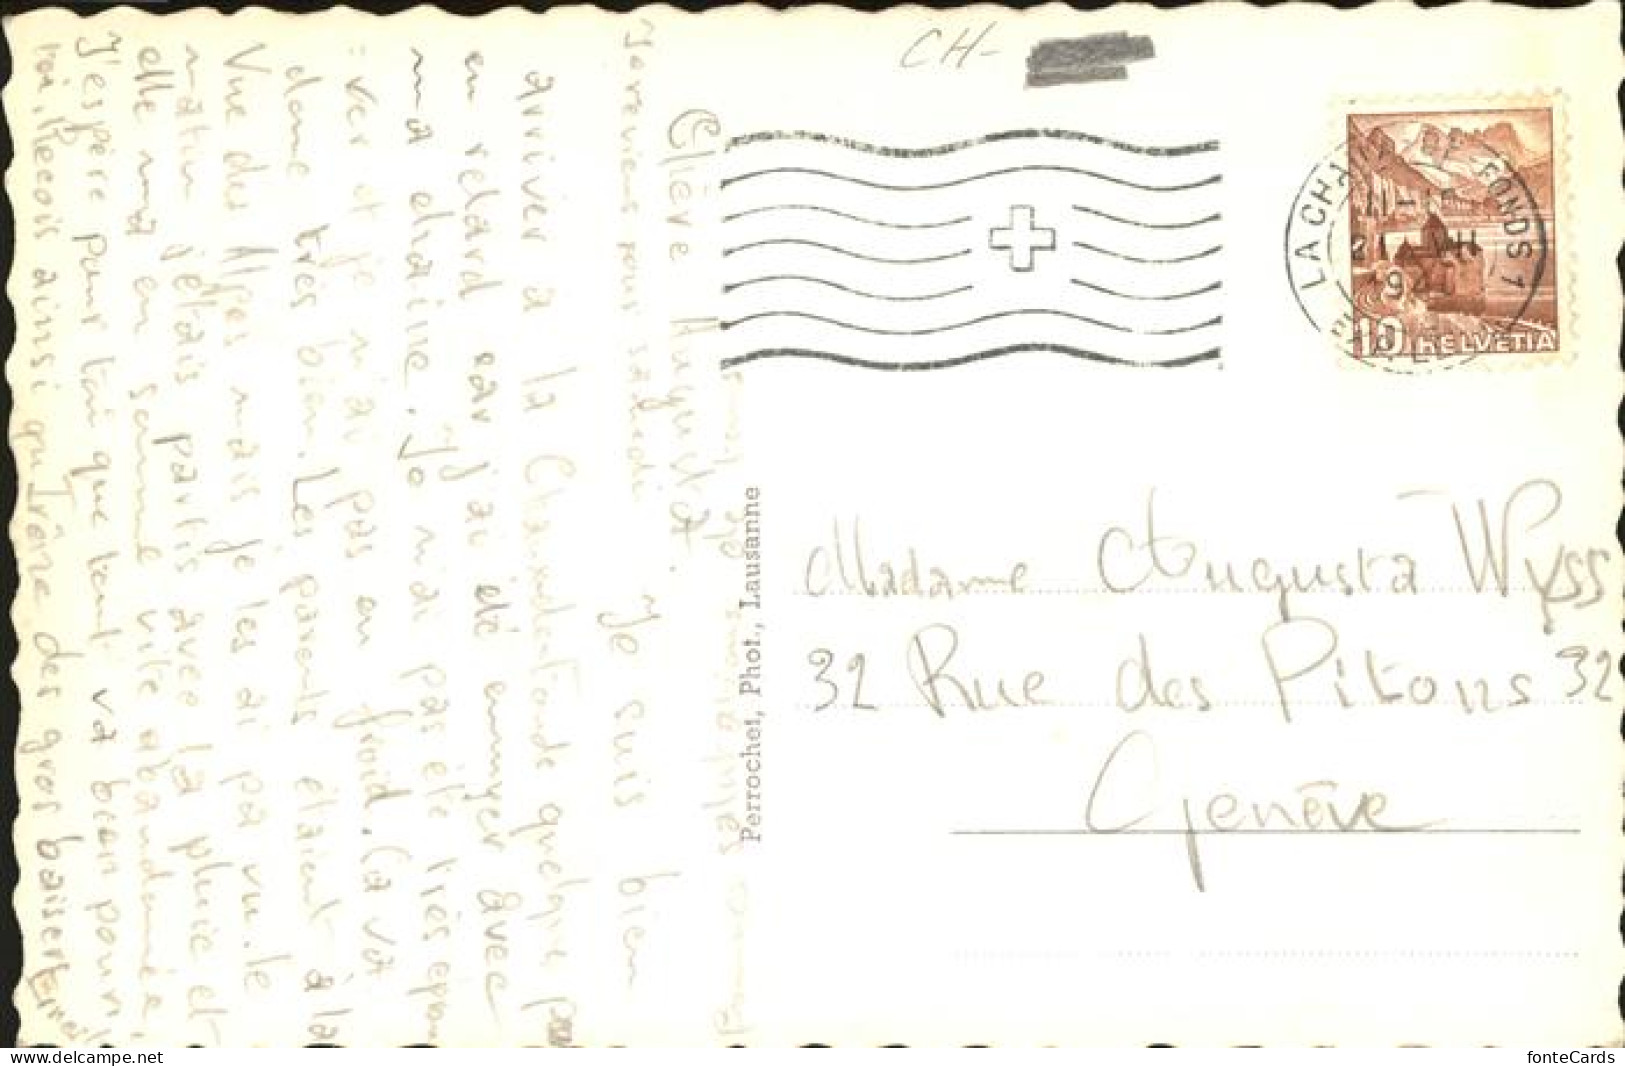 CH-
LA CHAUX-DE-FONDS 1
1941
10 HELVETIA
Chère Augusta.
Je suis bien
arrivée à la Chaux-de-Fonds quelque
en retard car j'ai dé ennuyer avec
ma chaine. Je n'ai pas été très éprou
=ver et je n'ai pas eu froid. Ca va
dame très bien. Les parents étaient à la
Vue des Alpes mais je les ai pa vu. le
matin j'étais partis avec la pluie et
elle m'a en somme vite abandonné.
J'espère pour toi que tout va bien pour
toi. Reçois ainsi qu'Irène des gros baisers
Je reviens pour samedi
Perrochet, Phot., Lausanne
Madame Augusta Wyss
32 Rue des Pitons 32
Genève
fonteCards
https://www.delcampe.net